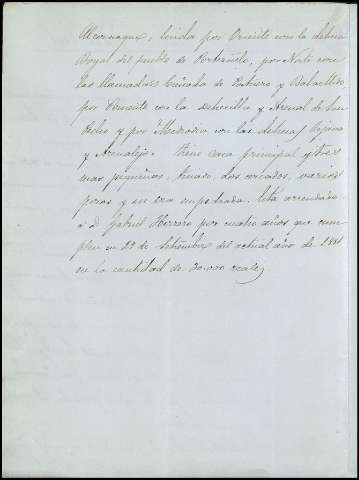 Alcornoques, linda por Oriente con la dehesa
Boyal del pueblo de, por Norte con
las llamadas Cañada de y
por Poniente con la Dehesilla y Arenal de San
Pedro y por Mediodia con las dehesas
y Arenalejo. Tiene casa principal y tres
mas pequeñas, tinado, dos, varios
pozos y su era empedrada. Está arrendada
á D. Gabriel Herrero por cuatro años que cum-
plen en 29 de Setiembre del actual año de
en la cantidad de 30.000 reales,